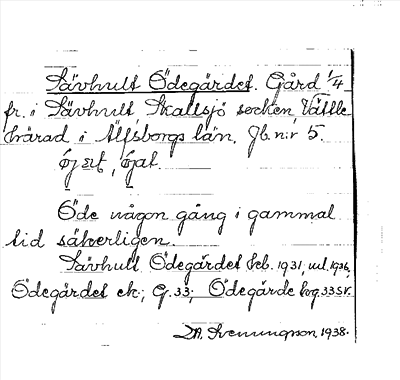 Sävhult Ödegärdet. Gård 1/4
fr. i Sävhult Skallsjö socken, Vättle
härad i Älfsborgs län. Jb. n:r 5.
Öde någon gång i gammal
tid säkerligen.
Sävhult Ödegärdet Keb. 1931, ml. 1936,
Ödegärdet ek., G. 33; Ödegärde kvg. 33 sv.
Svenungsson 1938.